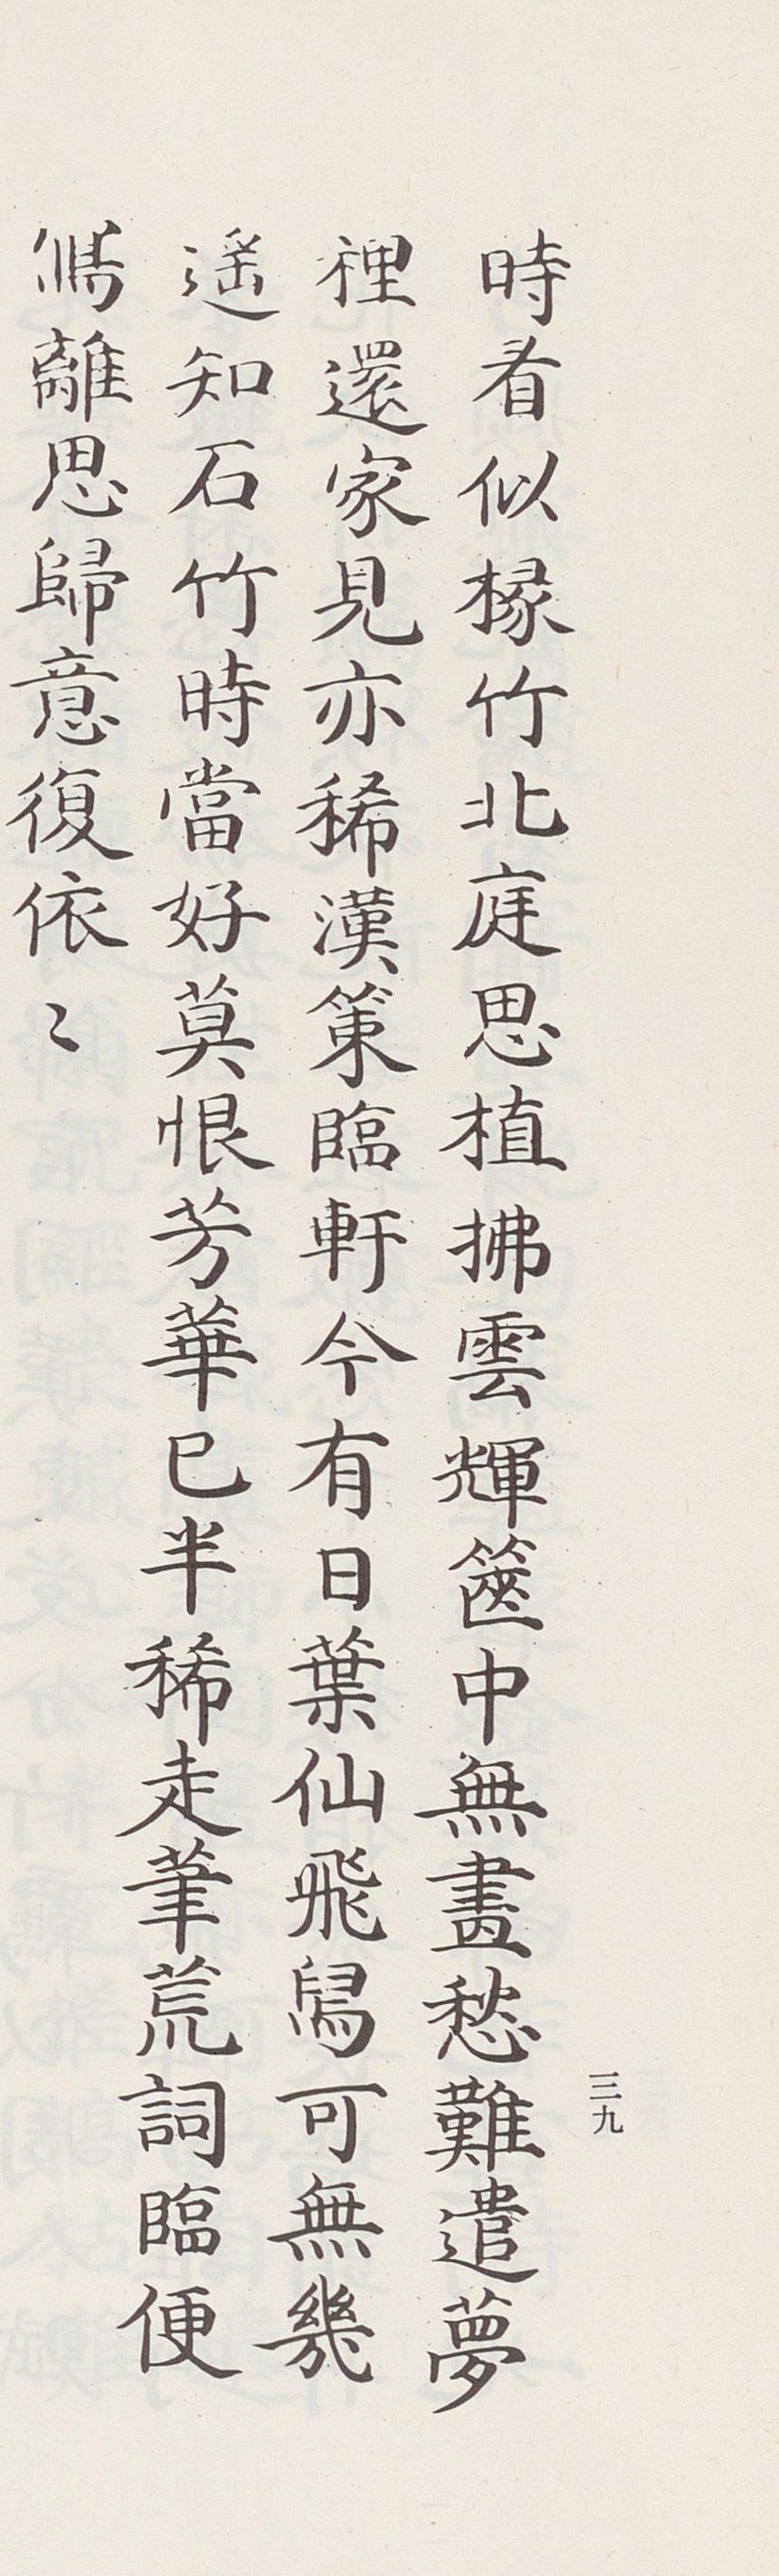 時看似椽竹北庭思植拂雲輝篋中無畫愁難遣夢
裡還家見亦稀漢策臨軒今有日葉仙飛舄可無幾
遥知石竹時當好莫恨芳華已半稀走筆荒詞臨便
鴈離思歸意復依〻
三九